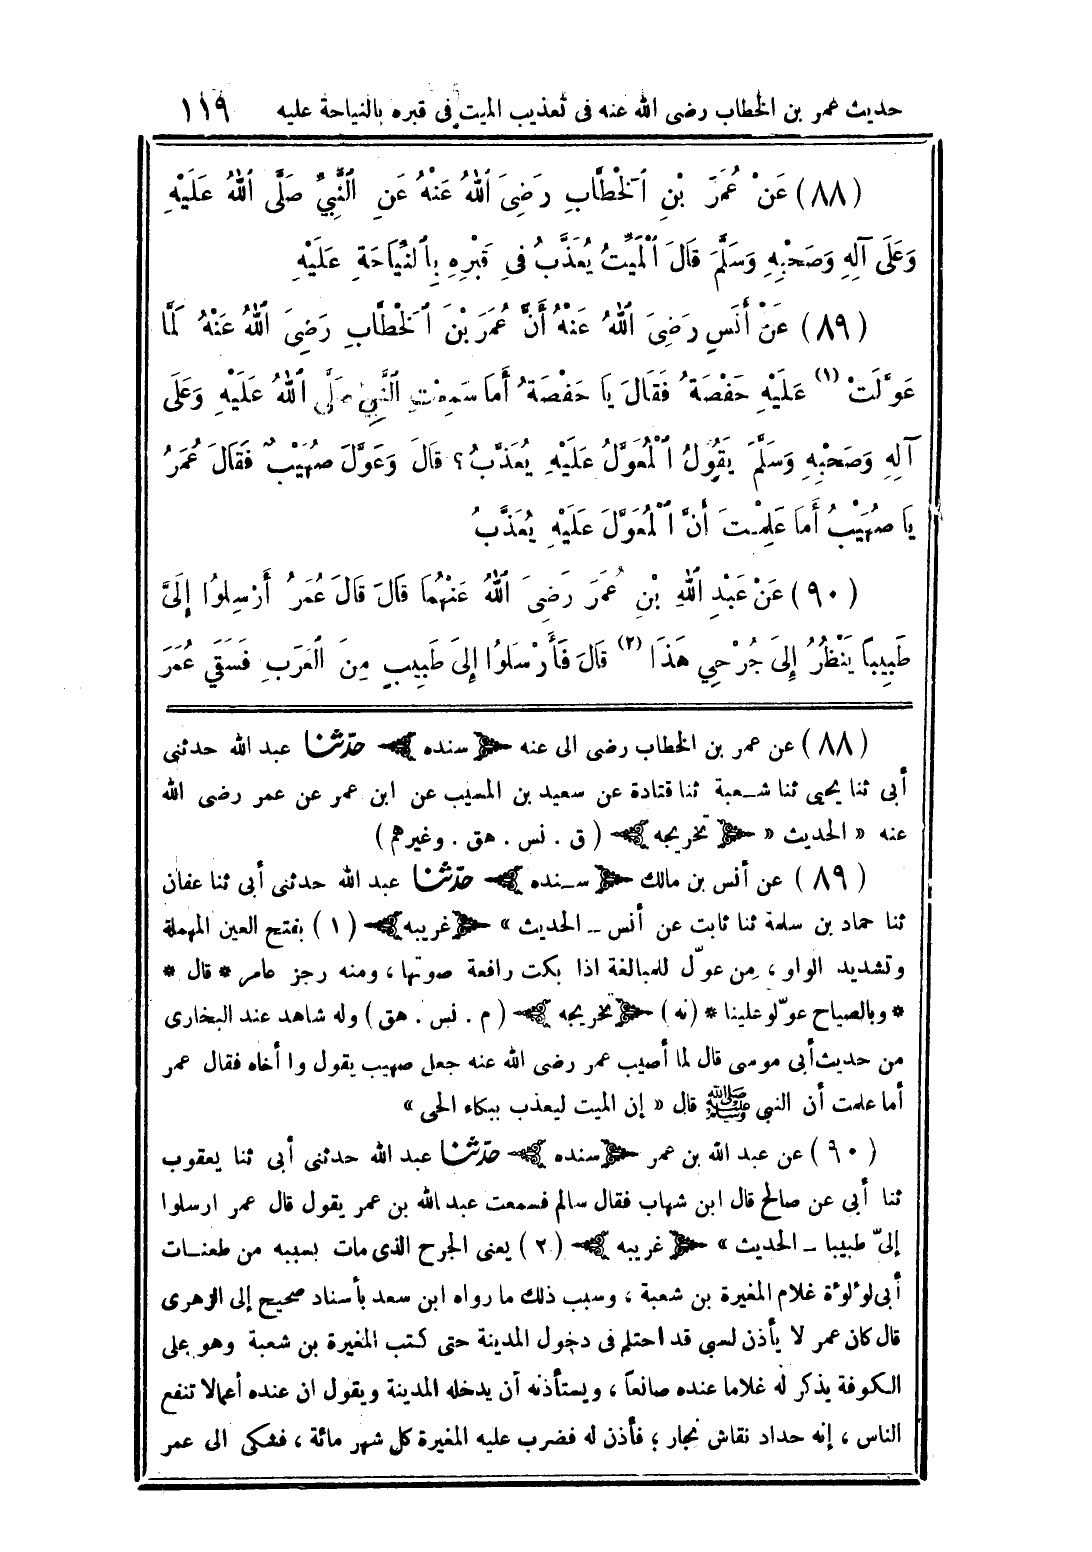 حديث عمر بن الخطاب رضى الله عنه فى تعذيب الميت فى قبره بالنياحة عليه ١١٩
(٨٨) عَنْ عُمَرَ بْنِ ٱلْخَطَّابِ رَضِىَ ٱللهُ عَنْهُ عَنِ ٱلنَّبِىِّ صَلَّى ٱللهُ عَلَيْهِ
وَعَلَى آلِهِ وَصَحْبِهِ وَسَلَّمَ قَالَ ٱلْمَيِّتُ يُعَذَّبُ فِى قَبْرِهِ بِالنِّيَاحَةِ عَلَيْهِ
(٨٩) عَنْ أَنَسٍ رَضِىَ ٱللهُ عَنْهُ أَنَّ عُمَرَ بْنَ ٱلْخَطَّابِ رَضِىَ ٱللهُ عَنْهُ لَمَّا
عَوَّلَتْ (١) عَلَيْهِ حَفْصَةُ فَقَالَ يَا حَفْصَةُ أَمَا سَمِعْتِ ٱلنَّبِىَّ صَلَّى ٱللهُ عَلَيْهِ وَعَلَى
آلِهِ وَصَحْبِهِ وَسَلَّمَ يَقُولُ ٱلْمُعَوَّلُ عَلَيْهِ يُعَذَّبُ؟ قَالَ وَعَوَّلَ صُهَيْبٌ فَقَالَ عُمَرُ
يَا صُهَيْبُ أَمَا عَلِمْتَ أَنَّ ٱلْمُعَوَّلَ عَلَيْهِ يُعَذَّبُ
(٩٠) عَنْ عَبْدِ ٱللهِ بْنِ عُمَرَ رَضِىَ ٱللهُ عَنْهُمَا قَالَ قَالَ عُمَرُ أَرْسِلُوا إِلَىَّ
طَبِيبًا يَنْظُرُ إِلَى جُرْحِي هَذَا (٢) قَالَ فَأَرْسَلُوا إِلَى طَبِيبٍ مِنَ ٱلْعَرَبِ فَسَقَي عُمَرَ
(٨٨) عن عمر بن الخطاب رضى الى عنه ﴿سنده﴾ حدّثنا عبد الله حدثنى
أبى ثنا يحيى ثنا شعبة ثنا قتادة عن سعيد بن المسيب عن ابن عمر عن عمر رضى الله
عنه « الحديث « ﴿تخريجه﴾ (ق . نس . هق . وغيرهم)
(٨٩) عن أنس بن مالك ﴿سنده﴾ حدّثنا عبد الله حدثنى أبى ثنا عفان
ثنا حماد بن سلمة ثنا ثابت عن أنس ــ الحديث » ﴿غريبه﴾ (١) بفتح العين المهملة
وتشديد الواو ، من عوّل للمبالغة اذا بكت رافعة صوتها ، ومنه رجز عامر * قال *
* وبالصياح عوّلو علينا * (نه) ﴿تخريجه﴾ (م . نس . هق) وله شاهد عند البخارى
من حديث أبى موسى قال لما أصيب عمر رضى الله عنه جعل صهيب يقول وا أخاه فقال عمر
أما علمت أن النبي ﷺ قال « إن الميت ليعذب ببكاء الحى »
(٩٠) عن عبد الله بن عمر ﴿سنده﴾ حدّثنا عبد الله حدثنى أبى ثنا يعقوب
ثنا أبى عن صالح قال ابن شهاب فقال سالم فسمعت عبد الله بن عمر يقول قال عمر ارسلوا
إلىّ طبيبا ــ الحديث » ﴿غريبه﴾ (٢) يعنى الجرح الذى مات بسببه من طعنات
أبى لؤلؤة غلام المغيرة بن شعبة ، وسبب ذلك ما رواه ابن سعد بأسناد صحيح إلى الزهرى
قال كان عمر لا يأذن لسبي قد احتلم فى دخول المدينة حتى كتب المغيرة بن شعبة وهو على
الكوفة يذكر له غلاما عنده صانعاً ، ويستأذنه أن يدخله المدينة ويقول ان عنده أعمالا تنفع
الناس ، إنه حداد نقاش نجار ؛ فأذن له فضرب عليه المغيرة كل شهر مائة ، فشكى الى عمر